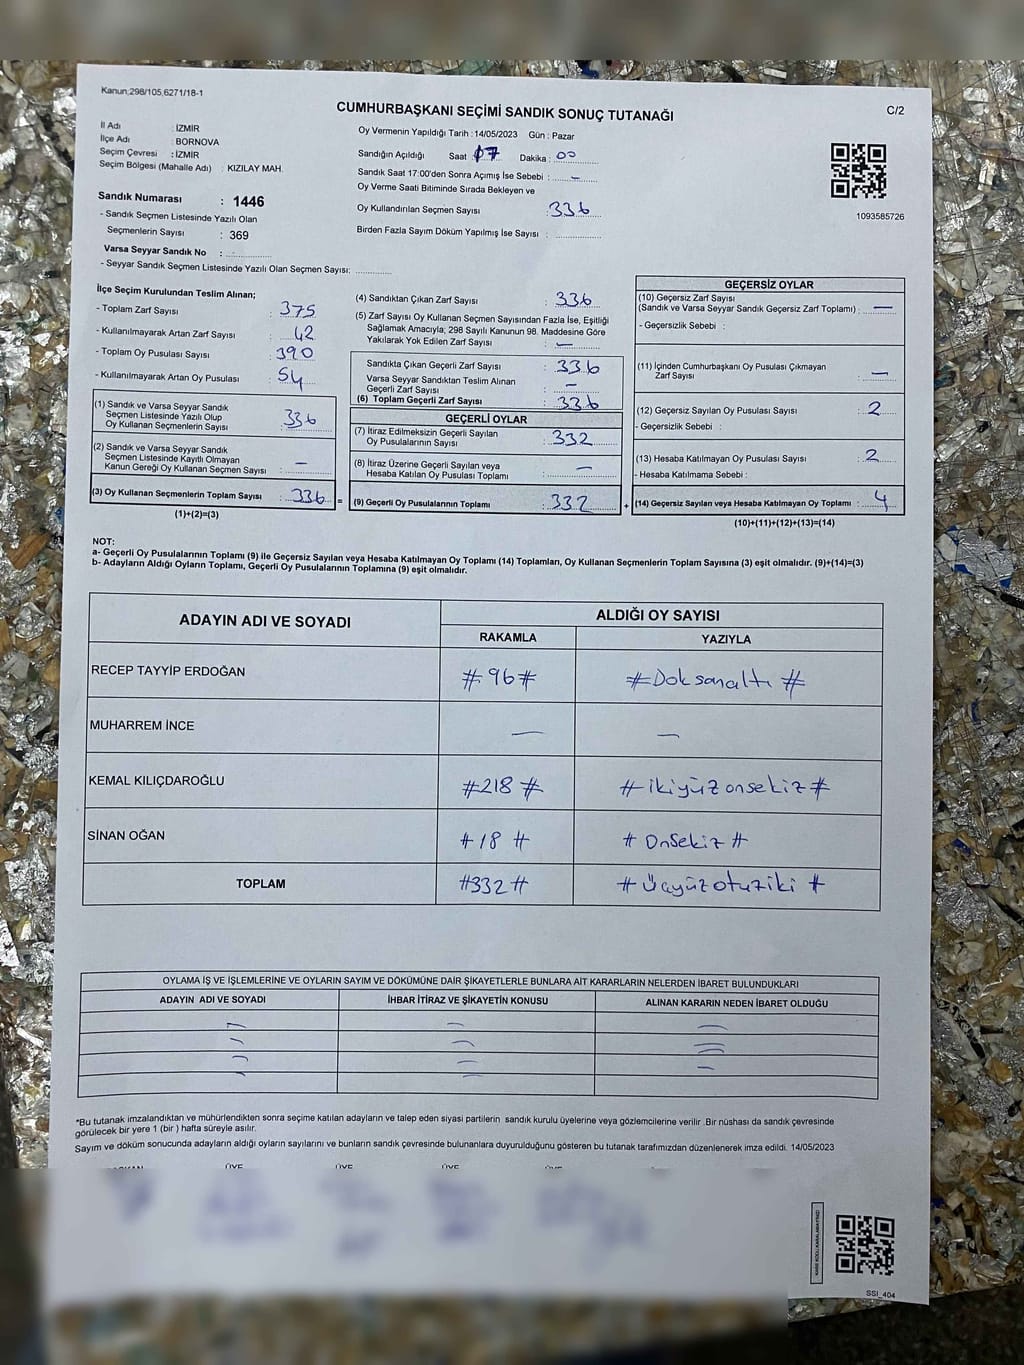 Kanun;298/105,6271/18-1
CUMHURBAŞKANI SEÇİMİ SANDIK SONUÇ TUTANAĞI
C/2
İl Adı : İZMİR
İlçe Adı : BORNOVA
Seçim Çevresi : İZMİR
Seçim Bölgesi (Mahalle Adı) : KIZILAY MAH.
Sandık Numarası : 1446
- Sandık Seçmen Listesinde Yazılı Olan
Seçmenlerin Sayısı : 369
Varsa Seyyar Sandık No :
- Seyyar Sandık Seçmen Listesinde Yazılı Olan Seçmen Sayısı:
Oy Vermenin Yapıldığı Tarih : 14/05/2023 Gün : Pazar
Sandığın Açıldığı Saat 07 Dakika : 00
Sandık Saat 17:00'den Sonra Açımış İse Sebebi : -
Oy Verme Saati Bitiminde Sırada Bekleyen ve
Oy Kullandırılan Seçmen Sayısı : 336
Birden Fazla Sayım Döküm Yapılmış İse Sayısı :
1093585726
İlçe Seçim Kurulundan Teslim Alınan;
- Toplam Zarf Sayısı : 375
- Kullanılmayarak Artan Zarf Sayısı : 42
- Toplam Oy Pusulası Sayısı : 390
- Kullanılmayarak Artan Oy Pusulası : 54
(1) Sandık ve Varsa Seyyar Sandık
Seçmen Listesinde Yazılı Olup
Oy Kullanan Seçmenlerin Sayısı : 336
(2) Sandık ve Varsa Seyyar Sandık
Seçmen Listesinde Kayıtlı Olmayan
Kanun Gereği Oy Kullanan Seçmen Sayısı : -
(3) Oy Kullanan Seçmenlerin Toplam Sayısı : 336 =
(1)+(2)=(3)
(4) Sandıktan Çıkan Zarf Sayısı : 336
(5) Zarf Sayısı Oy Kullanan Seçmen Sayısından Fazla İse, Eşitliği
Sağlamak Amacıyla; 298 Sayılı Kanunun 98. Maddesine Göre
Yakılarak Yok Edilen Zarf Sayısı : -
Sandıkta Çıkan Geçerli Zarf Sayısı : 336
Varsa Seyyar Sandıktan Teslim Alınan
Geçerli Zarf Sayısı : -
(6) Toplam Geçerli Zarf Sayısı : 336
GEÇERLİ OYLAR
(7) İtiraz Edilmeksizin Geçerli Sayılan
Oy Pusulalarının Sayısı : 332
(8) İtiraz Üzerine Geçerli Sayılan veya
Hesaba Katılan Oy Pusulası Toplamı : -
(9) Geçerli Oy Pusulalarının Toplamı : 332 +
GEÇERSİZ OYLAR
(10) Geçersiz Zarf Sayısı
(Sandık ve Varsa Seyyar Sandık Geçersiz Zarf Toplamı) : -
- Geçersizlik Sebebi :
(11) İçinden Cumhurbaşkanı Oy Pusulası Çıkmayan
Zarf Sayısı : -
(12) Geçersiz Sayılan Oy Pusulası Sayısı : 2
- Geçersizlik Sebebi :
(13) Hesaba Katılmayan Oy Pusulası Sayısı : 2
- Hesaba Katılmama Sebebi :
(14) Geçersiz Sayılan veya Hesaba Katılmayan Oy Toplamı : 4
(10)+(11)+(12)+(13)=(14)
NOT:
a- Geçerli Oy Pusulalarının Toplamı (9) ile Geçersiz Sayılan veya Hesaba Katılmayan Oy Toplamı (14) Toplamları, Oy Kullanan Seçmenlerin Toplam Sayısına (3) eşit olmalıdır. (9)+(14)=(3)
b- Adayların Aldığı Oyların Toplamı, Geçerli Oy Pusulalarının Toplamına (9) eşit olmalıdır.
ADAYIN ADI VE SOYADI ALDIĞI OY SAYISI
RAKAMLA YAZIYLA
RECEP TAYYİP ERDOĞAN # 96 # # Doksanaltı #
MUHARREM İNCE - -
KEMAL KILIÇDAROĞLU #218 # # ikiyüzonsekiz #
SİNAN OĞAN # 18 # # Onsekiz #
TOPLAM #332 # # Üçyüzotuziki #
OYLAMA İŞ VE İŞLEMLERİNE VE OYLARIN SAYIM VE DÖKÜMÜNE DAİR ŞİKAYETLERLE BUNLARA AİT KARARLARIN NELERDEN İBARET BULUNDUKLARI
ADAYIN ADI VE SOYADI İHBAR İTİRAZ VE ŞİKAYETİN KONUSU ALINAN KARARIN NEDEN İBARET OLDUĞU
*Bu tutanak imzalandıktan ve mühürlendikten sonra seçime katılan adayların ve talep eden siyasi partilerin sandık kurulu üyelerine veya gözlemcilerine verilir .Bir nüshası da sandık çevresinde
görülecek bir yere 1 (bir ) hafta süreyle asılır.
Sayım ve döküm sonucunda adayların aldığı oyların sayılarını ve bunların sandık çevresinde bulunanlara duyurulduğunu gösteren bu tutanak tarafımızdan düzenlenerek imza edildi. 14/05/2023
ÜYE ÜYE ÜYE
SSI_404